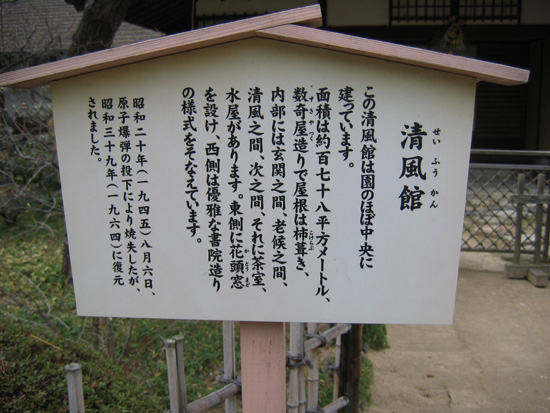 清風館
せいふうかん
この清風館は園のほぼ中央に
建っています。
面積は約百七十八平方メートル、
数奇屋造りで屋根は柿葺き、
すきやづくり
こけらぶ
内部には玄関之間、老候之間、
清風之間、次之間、それに茶室、
水屋があります。東側に花頭窓
かとうまど
を設け、西側は優雅な書院造り
の様式をそなえています。
昭和二十年(一九四五)八月六日、
原子爆弾の投下により焼失したが、
昭和三十九年(一九六四)に復元
されました。